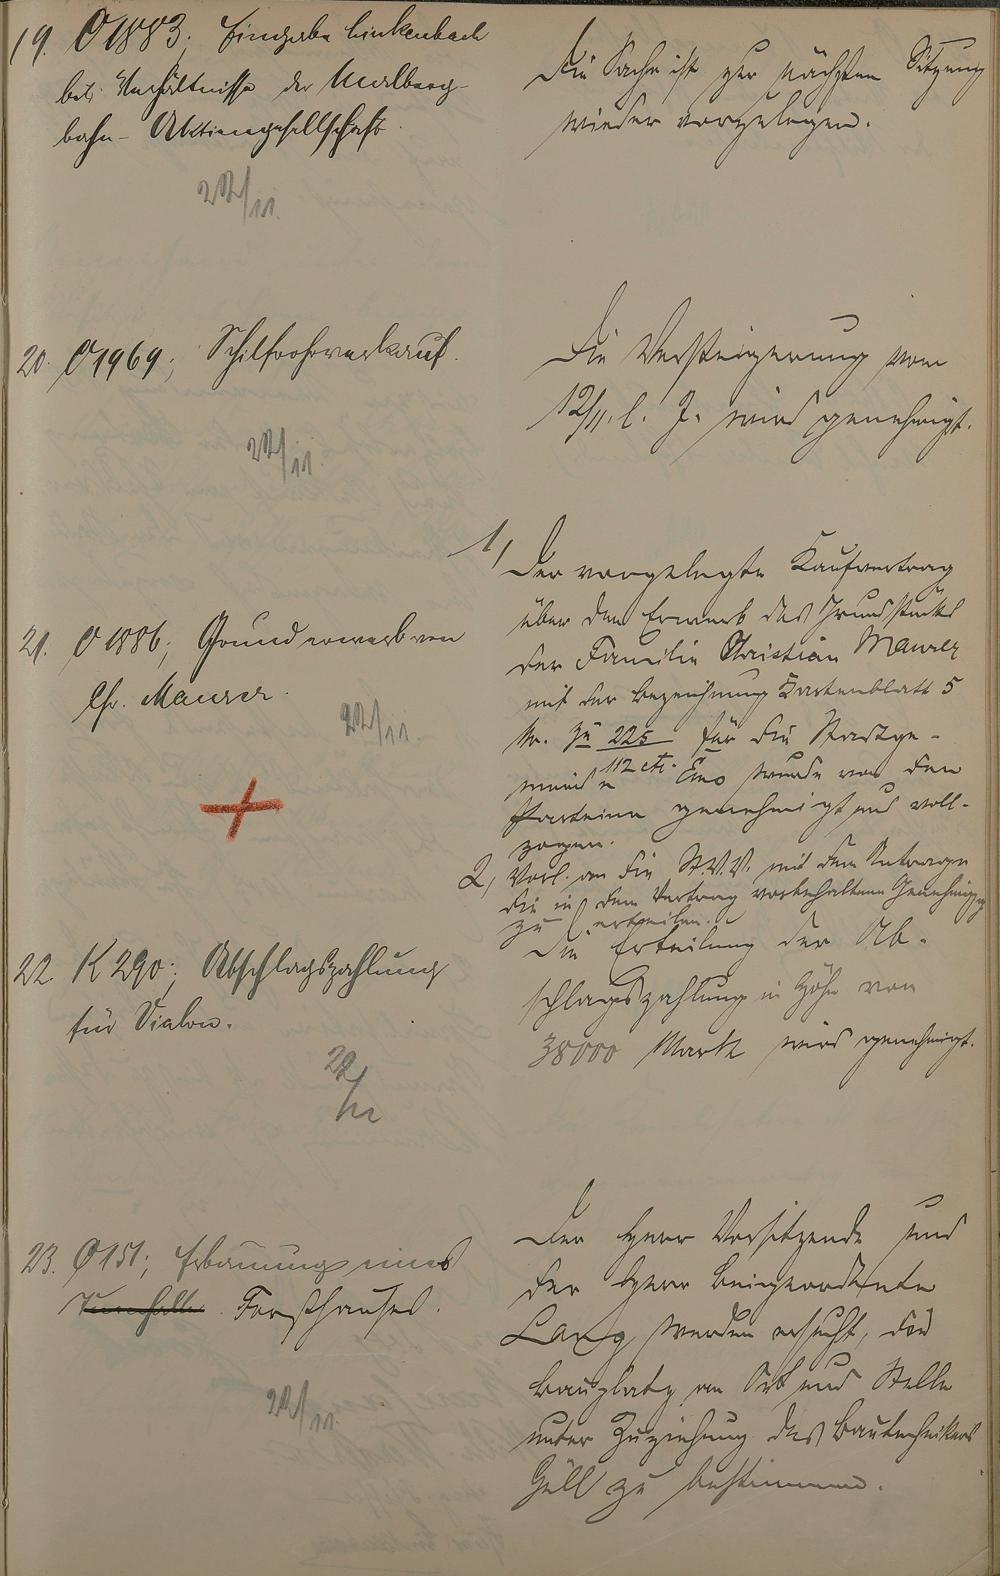 19. O 1883; Eingabe Linkenbach
betr. Verhältnisse der Malberg-
bahn-Aktiengesellschaft.
22/11.
Die Sache ist zur nächsten Sitzung
wieder vorzulegen.
20. O 1969; Schilfrohrverkauf.
22/11.
Die Versteigerung vom
12/11. l. J. wird genehmigt.
21. O 1886; Grunderwerb von
Chr. Maurer.
22/11.
1, Der vorgelegte Kaufvertrag
über den Erwerb des Grundstücks
der Familie Christian Maurer
mit der Bezeichnung Kartenblatt 5
Nr. zu 225 für die Stadtge-
112 etc.
meinde Ems wurde von den
Parteien genehmigt und voll-
zogen.
2, Vorl. an die St.V.V. mit dem Antrage
die in dem Vertrag vorbehaltene Genehmigung
zu erteilen.
22. K 290; Abschlagszahlung
für Vialon.
22/11
Die Erteilung der Ab-
schlagszahlung in Höhe von
38000 Mark wird genehmigt.
23. O 151; Erbauung eines
Turnhalle Forsthauses.
22/11.
Der Herr Vorsitzende und
der Herr Beigeordnete
Lang werden ersucht, den
Bauplatz an Ort und Stelle
unter Zuziehung des Bautechnikers
Güll zu bestimmen.